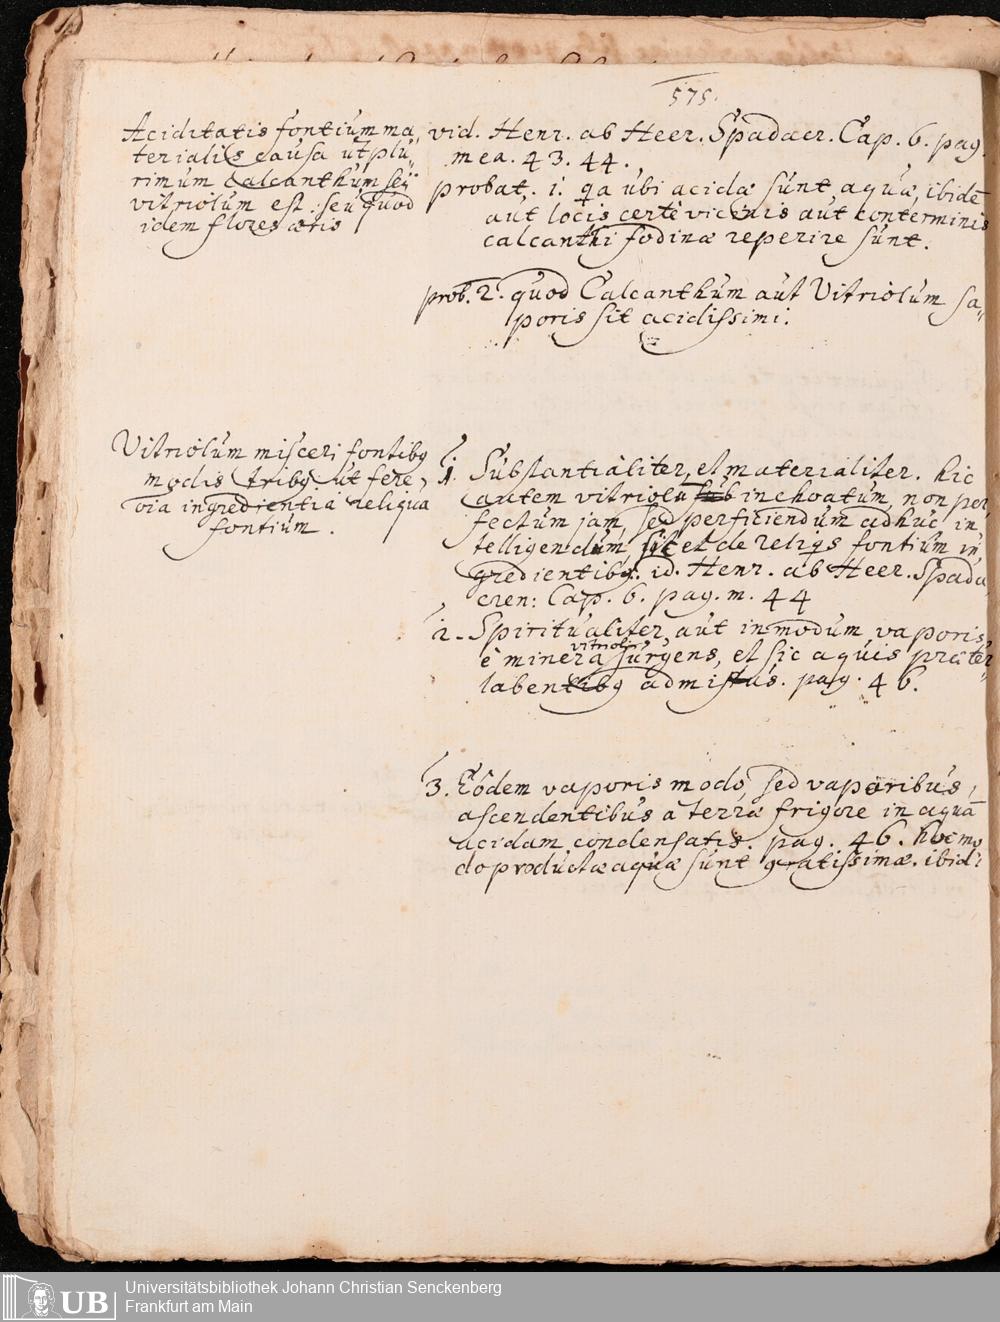 575.
Aciditatis fontium ma„
terialis causa ut plu„
rimum Calcanthum seu
vitriolum est: seu quod
idem flores æris
vid. Henr. ab Heer. Spadacr. Cap. 6. pag.
mea. 43. 44.
probat. 1. qa ubi acidæ sunt aquæ, ibidē
aut locis certè vicinis aut conterminis
calcanthi fodinæ reperire sunt.
prob. 2. quod Calcanthum aut Vitriolum sa„
poris sit acidissimi.
Vitriolum misceri fontibq
modis tribq. ut fere
oia ingredientia reliqua
fontium.
1. Substantialiter, et materialiter. hic
autem vitriolū inchoatum, non per„
fectum jam, sed perficiendum adhuc in„
telligendum, sit et de reliqs fontium in„
gredientibq. id. Henr. ab Heer. Spada„
cren: Cap. 6. pag. m. 44
2. Spiritualiter, aut in modum vaporis
vitrioli
è minera surgens, et sic aquis præter„
labentibq admistus. pag. 46.
3. Eôdem vaporis modo, sed vaporibus,
ascendentibus a terræ frigore in aquā
acidam condensatis. pag. 46. hoc mo„
do productæ aquæ sunt gratissimæ. ibid:
Universitätsbibliothek Johann Christian Senckenberg
Frankfurt am Main
UB